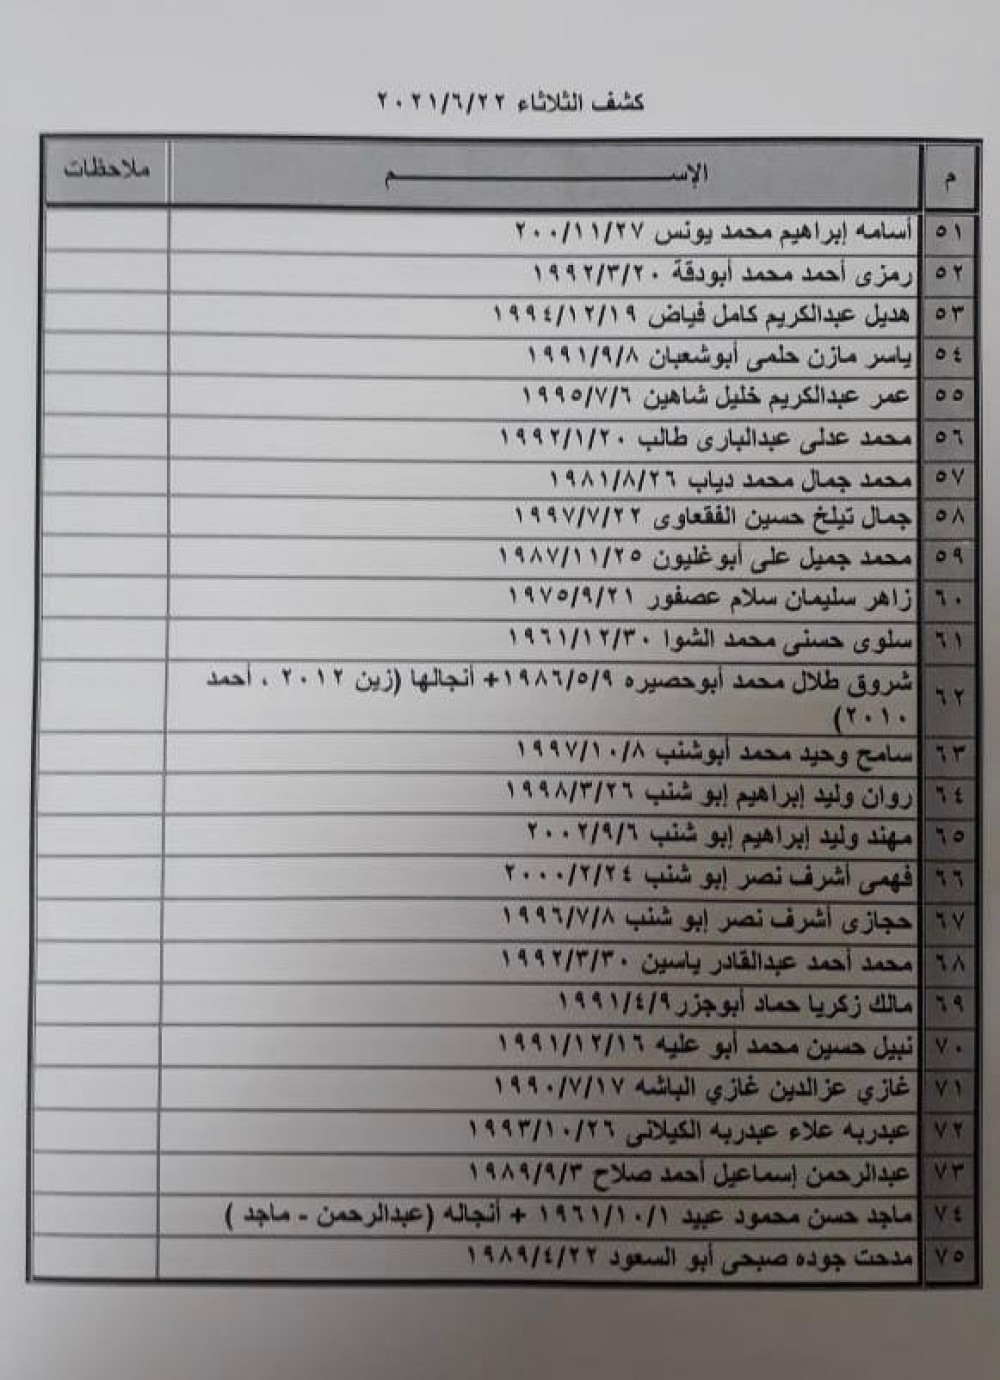 كشف الثلاثاء ٢٠٢١/٦/٢٢
م الإســـــــــــــــــــم ملاحظات
٥١ أسامه إبراهيم محمد يونس ٢٠٠/١١/٢٧
٥٢ رمزى أحمد محمد أبودقة ١٩٩٢/٣/٢٠
٥٣ هديل عبدالكريم كامل فياض ١٩٩٤/١٢/١٩
٥٤ ياسر مازن حلمى أبوشعبان ١٩٩١/٩/٨
٥٥ عمر عبدالكريم خليل شاهين ١٩٩٥/٧/٦
٥٦ محمد عدلى عبدالبارى طالب ١٩٩٢/١/٢٠
٥٧ محمد جمال محمد دياب ١٩٨١/٨/٢٦
٥٨ جمال تيلخ حسين الفقعاوى ١٩٩٧/٧/٢٢
٥٩ محمد جميل على أبوغليون ١٩٨٧/١١/٢٥
٦٠ زاهر سليمان سلام عصفور ١٩٧٥/٩/٢١
٦١ سلوى حسنى محمد الشوا ١٩٦١/١٢/٣٠
٦٢ شروق طلال محمد أبوحصيره ١٩٨٦/٥/٩+ أنجالها (زين ٢٠١٢ ، أحمد
٢٠١٠)
٦٣ سامح وحيد محمد أبوشنب ١٩٩٧/١٠/٨
٦٤ روان وليد إبراهيم إبو شنب ١٩٩٨/٣/٢٦
٦٥ مهند وليد إبراهيم إبو شنب ٢٠٠٢/٩/٦
٦٦ فهمى أشرف نصر إبو شنب ٢٠٠٠/٢/٢٤
٦٧ حجازى أشرف نصر إبو شنب ١٩٩٦/٧/٨
٦٨ محمد أحمد عبدالقادر ياسين ١٩٩٢/٣/٣٠
٦٩ مالك زكريا حماد أبوجزر١٩٩١/٤/٩
٧٠ نبيل حسين محمد أبو عليه ١٩٩١/١٢/١٦
٧١ غازي عزالدين غازي الباشه ١٩٩٠/٧/١٧
٧٢ عبدربه علاء عبدربه الكيلانى ١٩٩٣/١٠/٢٦
٧٣ عبدالرحمن إسماعيل أحمد صلاح ١٩٨٩/٩/٣
٧٤ ماجد حسن محمود عبيد ١٩٦١/١٠/١ + أنجاله (عبدالرحمن - ماجد )
٧٥ مدحت جوده صبحى أبو السعود ١٩٨٩/٤/٢٢